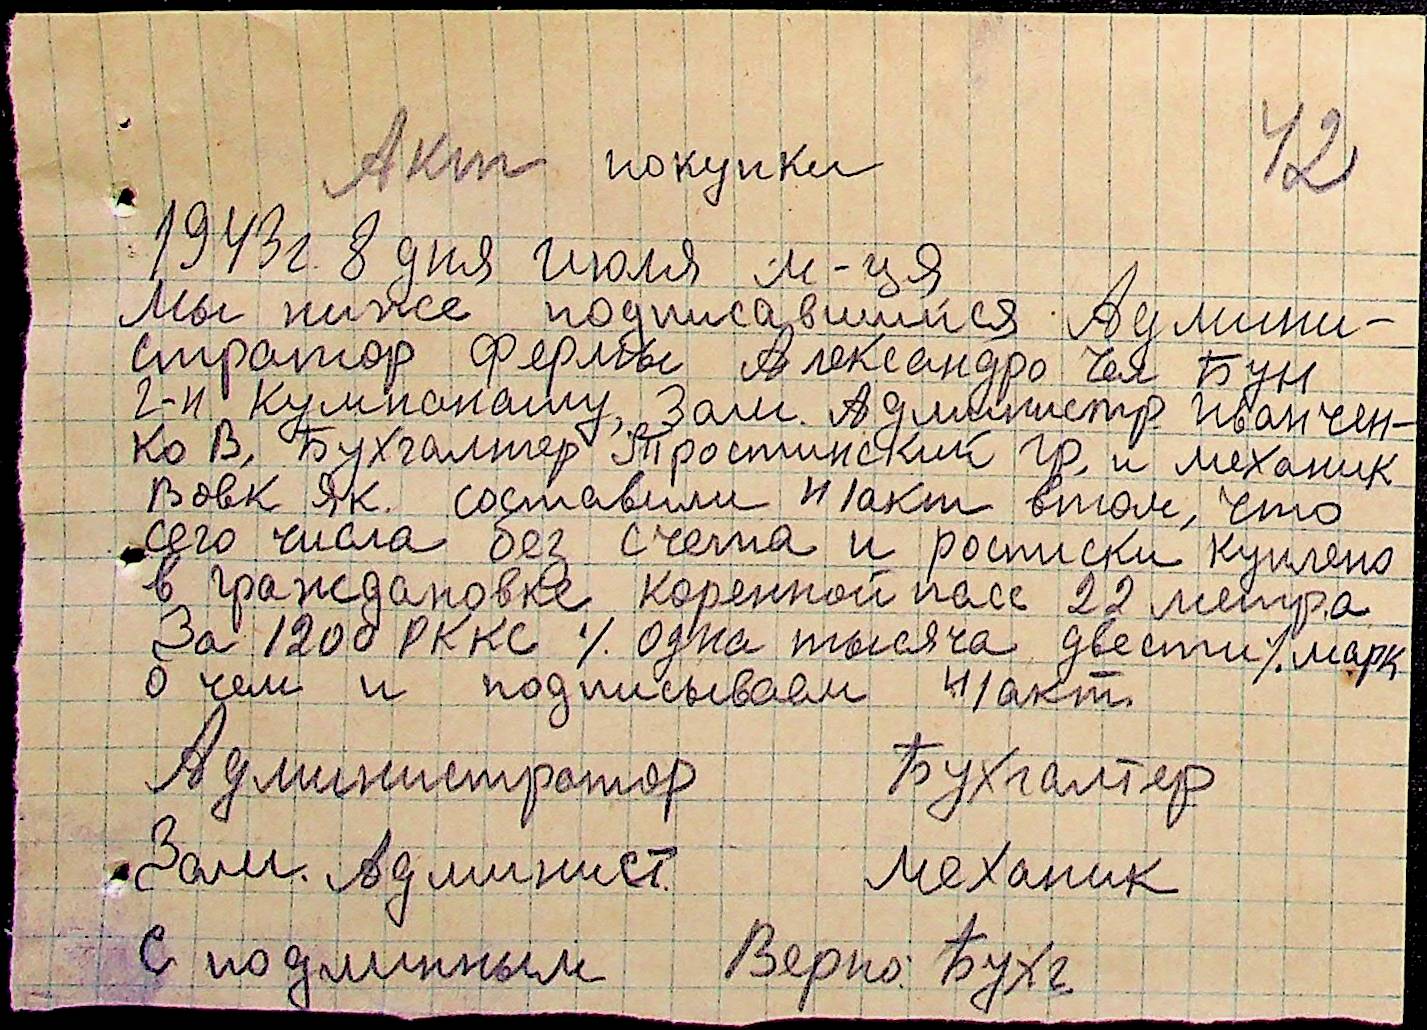 Акт покупки 42
1943г. 8 дня июля м-ця
Мы ниже подписавшийся Админи-
стратор фермы Александро Чел Бун
г-н Кумпанашу, Зам. Администр Иванчен-
ко В, Бухгалтер Тростинский Гр. и механик
Вовк Як. составили н/акт втом, что
сего числа без счета и росписки куплено
в граждановке коренной пасс 22 метра
За 1200 РККС %. одна тысяча двести %. марк
о чем и подписываем н/акт.
Администратор Бухгалтер
Зам. Админист. механик
С подлинным Верно: Бухг